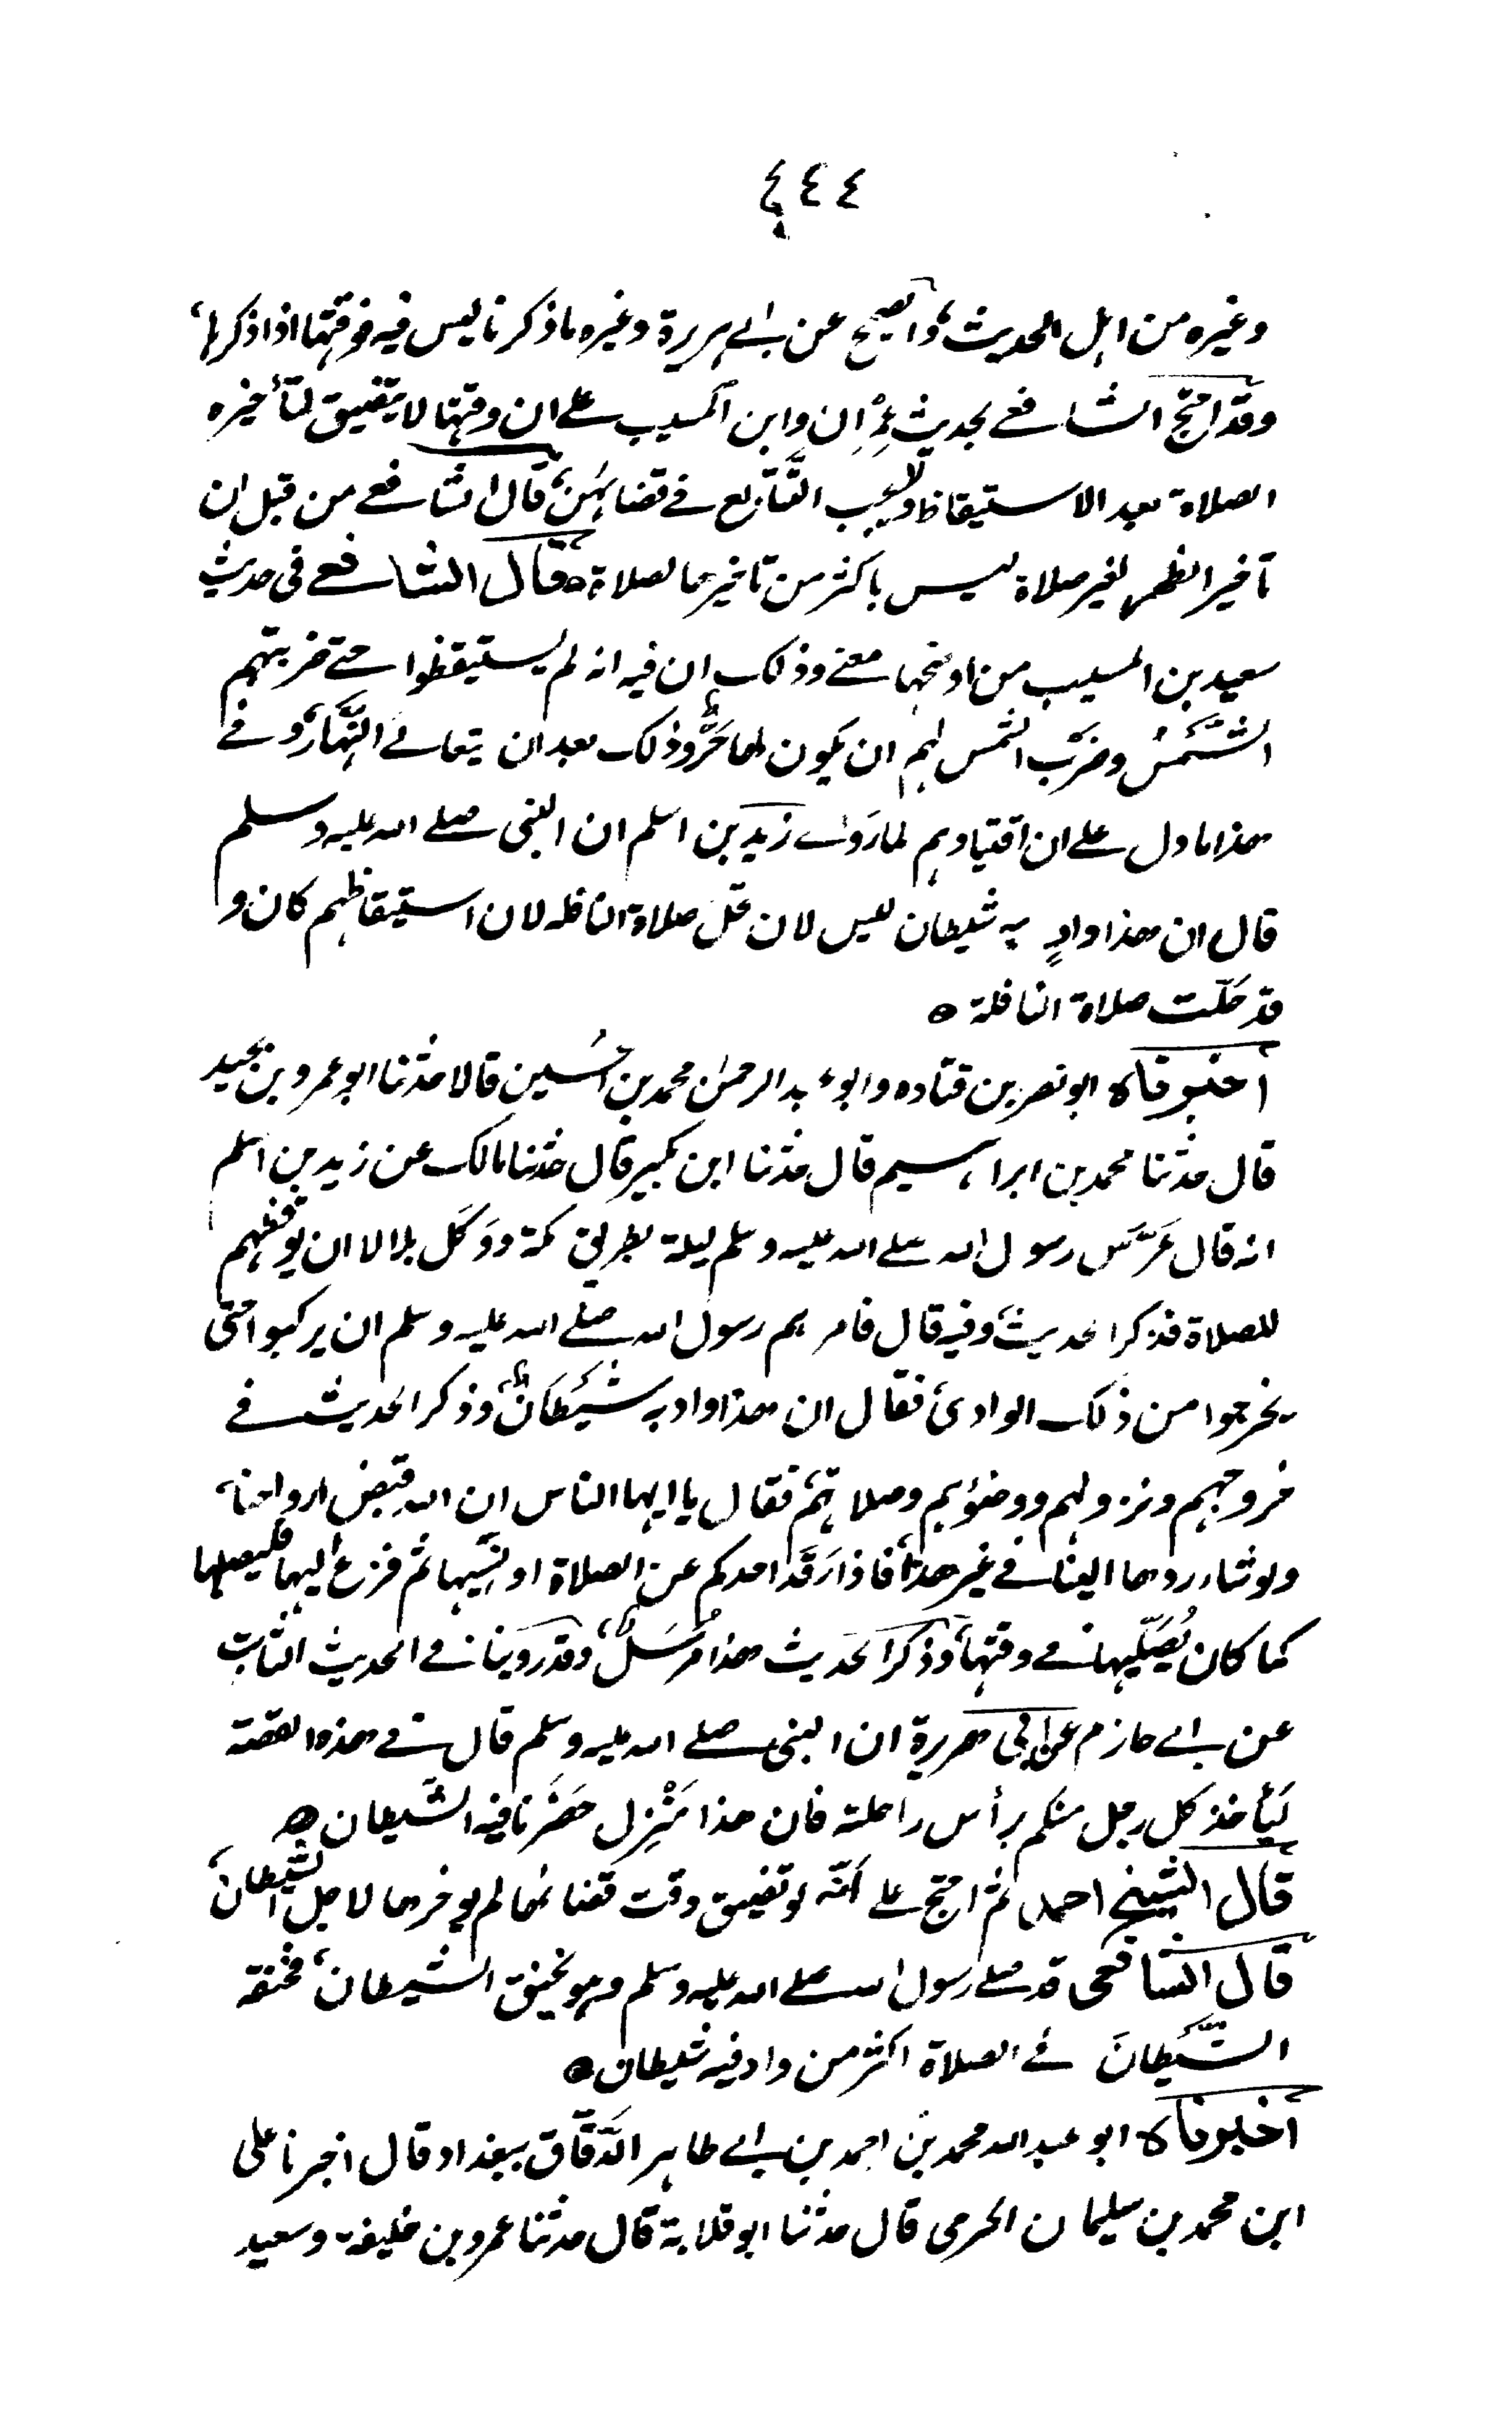 ٤٤٤
وغيره من اهل الحديث، والصحيح عن ابي هريرة وغيره ما ذكرنا ليس فيه فوقتها اذا ذكرها،
وقد احتج الشافعي بحديث عمران وابن المسيب على ان وقتها لا يتضيق لتأخيره
الصلاة بعد الاستيقاظ ولا يجب التتابع في قضائهن، قال الشافعي من قبل ان
تاخير الظهر لغير صلاة ليس باكثر من تاخيرها لصلاة ه قال الشافعي في حديث
سعيد بن المسيب من اوضحها معنى وذلك ان فيه انه لم يستيقظوا حتى ضربتهم
الشَّمسُ وضرب الشمس لهم ان يكون لها حَرٌّ وذلك بعد ان يتعالى النَّهار، وفي
هذا ما دل على ان اقتيادهم لما رَوى زيد بن اسلم ان النبي صلى الله عليه وسلم
قال ان هذا وادٍ به شيطان ليس لان تحل صلاة النافله لان استيقاظهم كان و
قد حَلّت صلاة النافلة ه
أخبرناه ابو نصر بن قتاده وابو عبد الرحمن محمد بن الحسين قالا حدثنا ابو عمرو بن نجيد
قال حدثنا محمد بن ابراهيم قال حدثنا ابن بكير قال حدثنا مالك عن زيد بن اسلم
انه قال عَرَّسَ رسول الله صلى الله عليه وسلم ليلة بطريق مكة ووَكَّل بلالا ان يوقظهم
للصلاة فذكر الحديث وفيه قال فامرهم رسول الله صلى الله عليه وسلم ان يركبوا حتى
يخرجوا من ذلك الوادي فقال ان هذا واد به شَيْطَانٌ، وذكر الحديث في
خروجهم ونزولهم ووضوئهم وصلاتهم فقال يا ايها الناس ان الله قبض ارواحنا،
ولو شاء ردها الينا في غير هذا، فاذا رَقَدَ احدكم عن الصلاة او نسيها ثم فزع اليها فليصلها
كما كان يُصَلّيها في وقتها، وذكر الحديث هذا مُرسَلٌ، وقد روينا في الحديث الثابت
عن ابي حازم عن ابي هريرة ان النبي صلى الله عليه وسلم قال في هذه القصة
لِيَأخذ كل رجل منكم برأس راحلته فان هذا مَنْزِل حَضَرَنا فيه الشيطان ه
قال الشيخ احمد ثم احتج على أنّه لو تضيق وقت قضائها لم يوخرها لاجل الشيطان،
قال الشافعي قد صلى رسول الله صلى الله عليه وسلم وهو يخنق الشيطان، فخنقه
الشَّيطَانَ في الصلاة اكثر من واد فيه شيطان ه
أخبرناه ابو عبد الله محمد بن احمد بن ابي طاهر الدَّقّاق ببغداد قال اخبرنا على
ابن محمد بن سليمان الخرمي قال حدثنا ابو قلابة قال حدثنا عمرو بن خليفة وسعيد